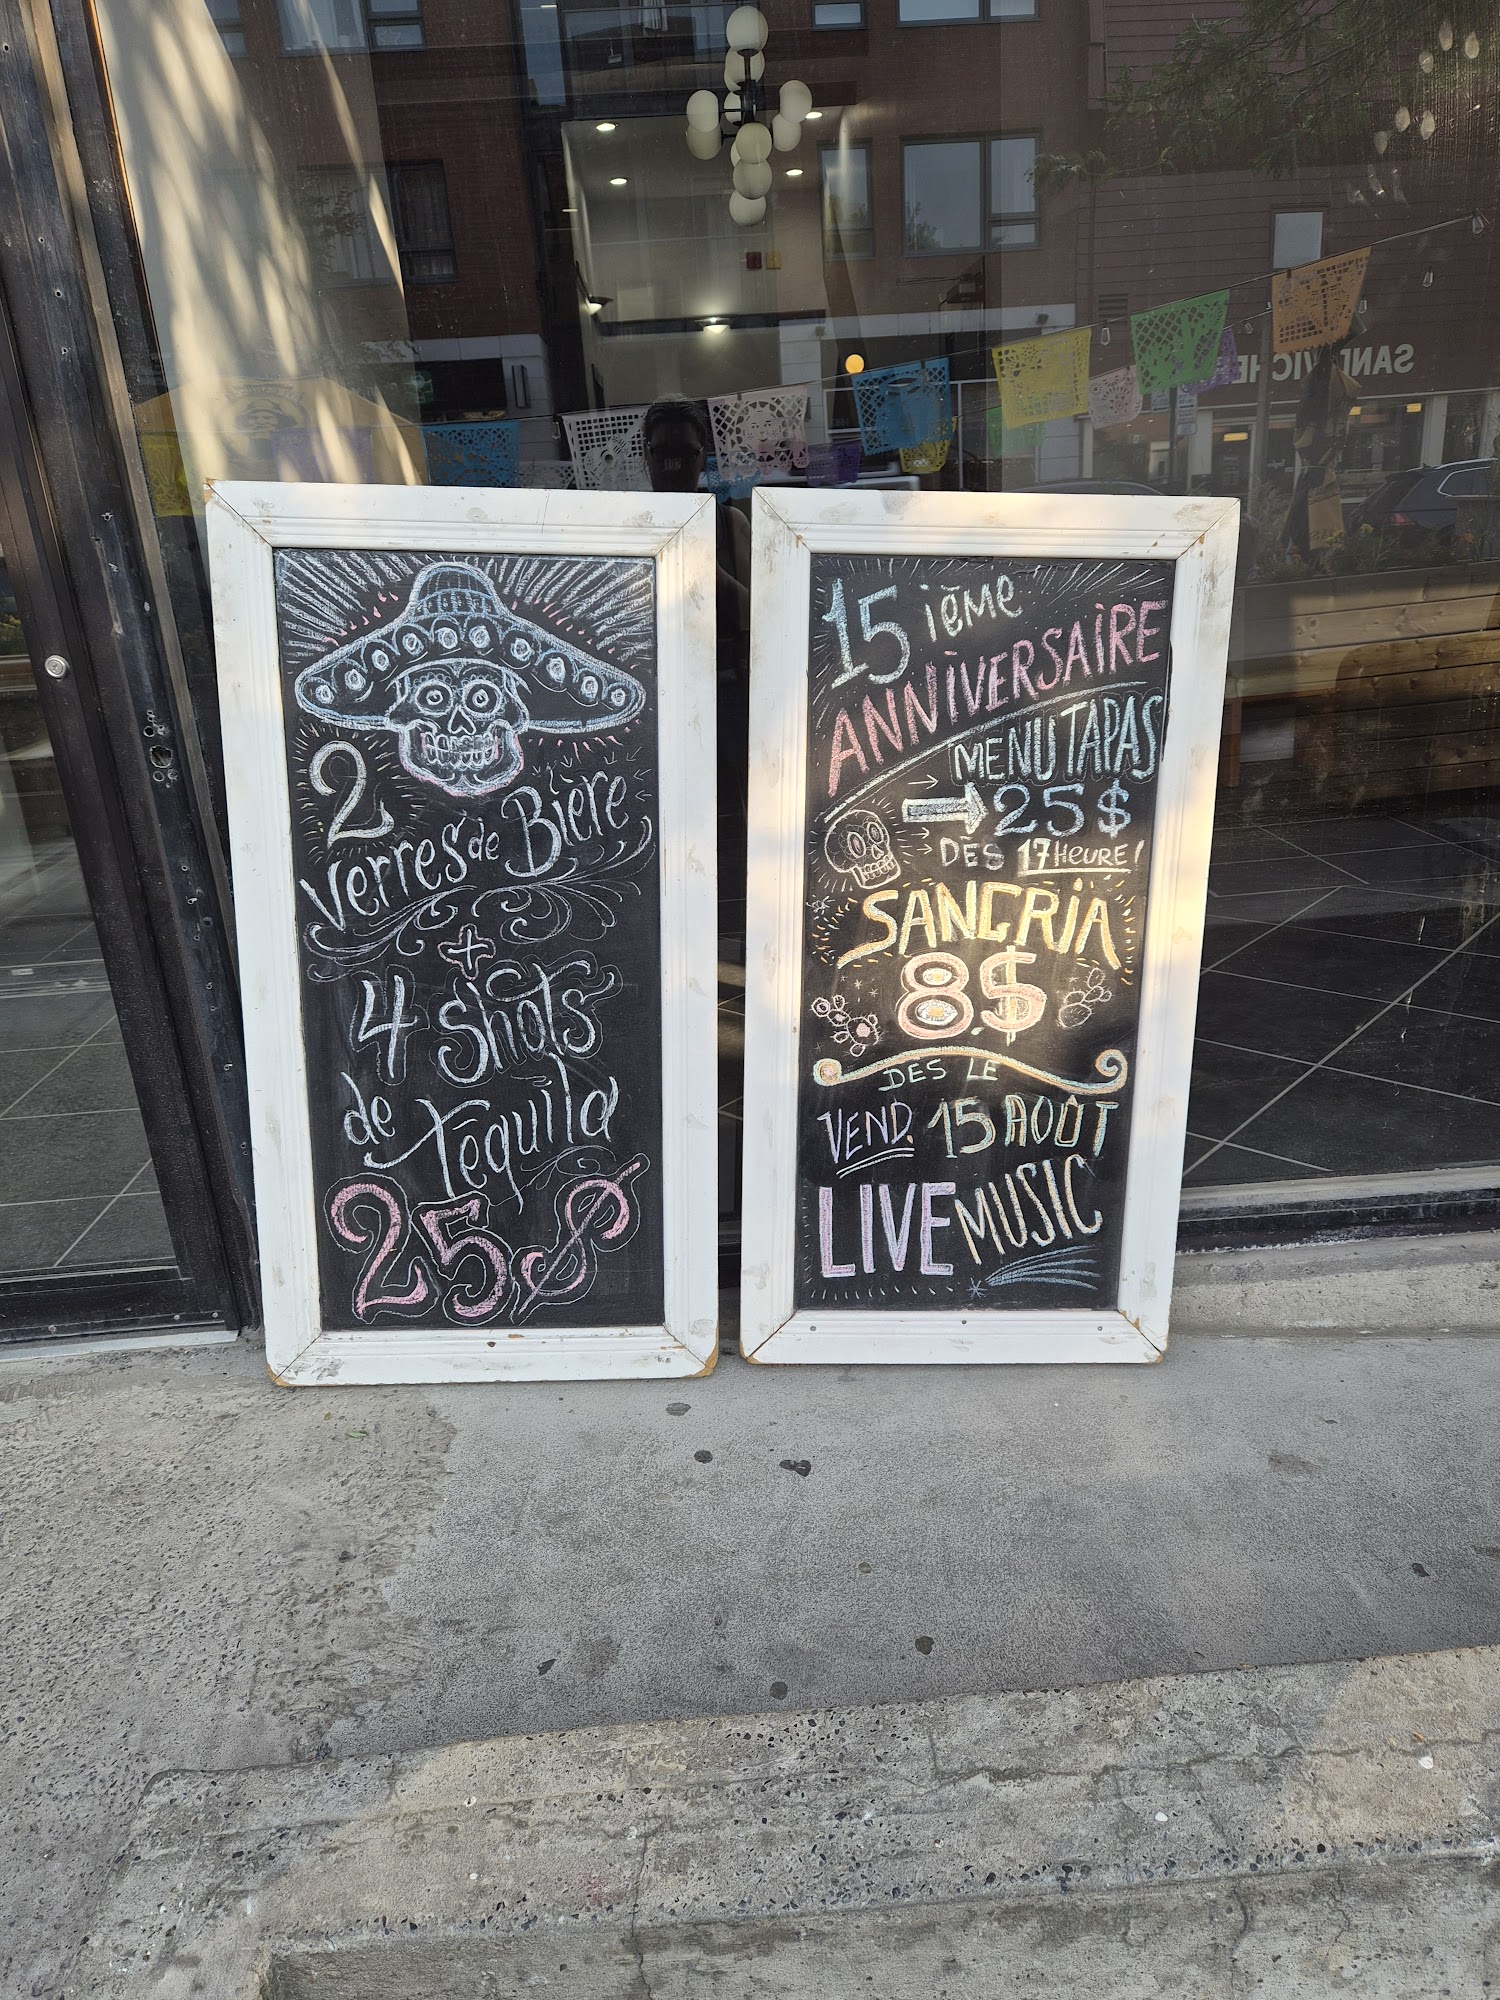 2
verres de Bière
+
4 shots
de Téquila
25$
15 ième
ANNiVERSAiRE
MENU TAPAS
25$
DÈS 17 HEURE!
SANGRiA
8$
DES LE
VEND. 15 AOÛT
LIVE MUSIC
SANDWICHE